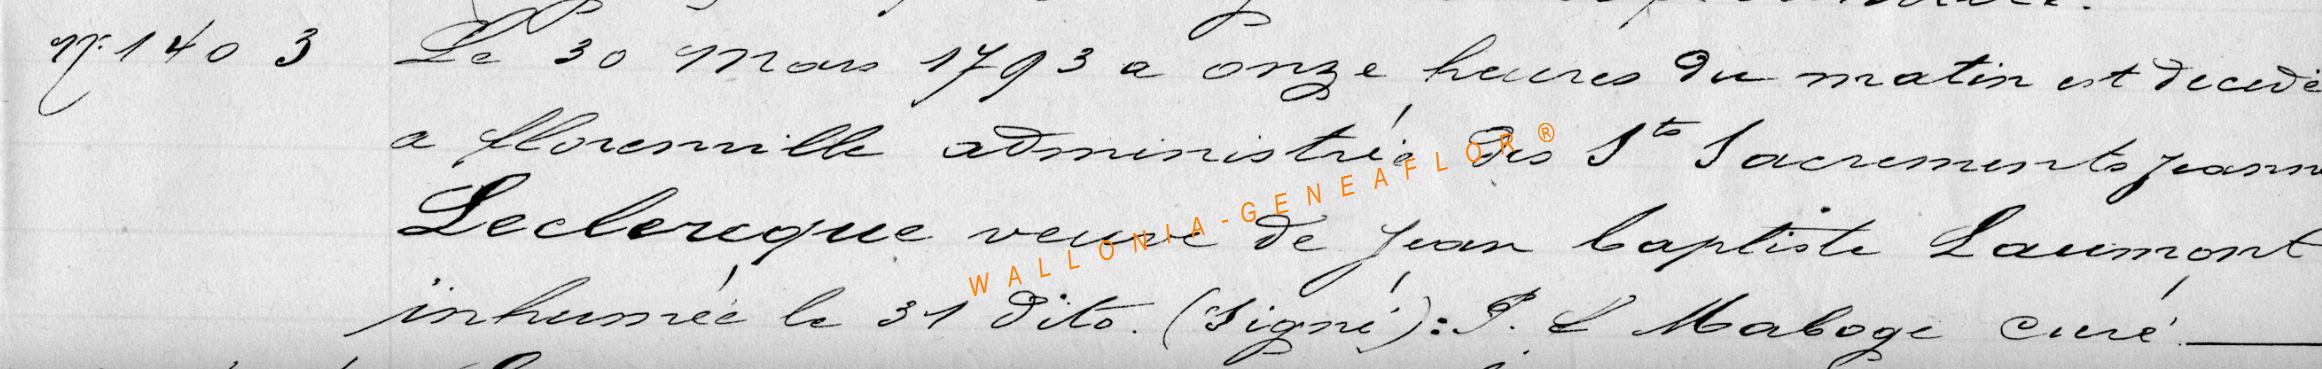 N° 1403 Le 30 Mars 1793 a onze heures du matin est decedé
a florenville administrée des Sts Sacrements jeanne
Leclercque veuve de jean baptiste Laumont
inhumée le 31 dito. (signé): P. L Maboge curé
WALLONIA-GENEAFLOR®